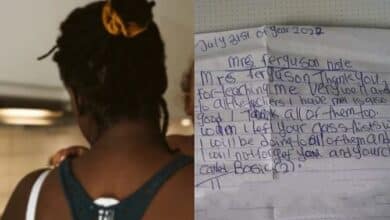 July 31st of year 2022
Mrs ferguson note
Mrs ferguson Thank you
for teaching me very well and
to all the teachers I have
good I Thank all of them too.
when I left your class
I will be doing to all of them and
I will not forget you and your
called Basic (2).